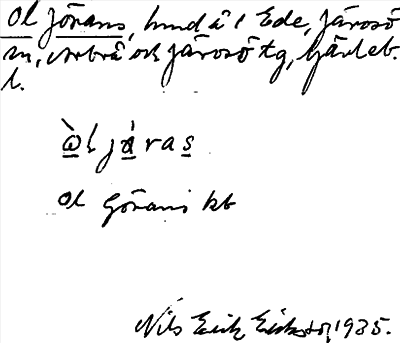 Ol Jörans, hmd å i Ede, Järvsö
sn, Arbrå och Järvsö tg, Gävleb.
l.
ὼl járas
Ol Görans kb
Nils Erik Eriksson, 1935.